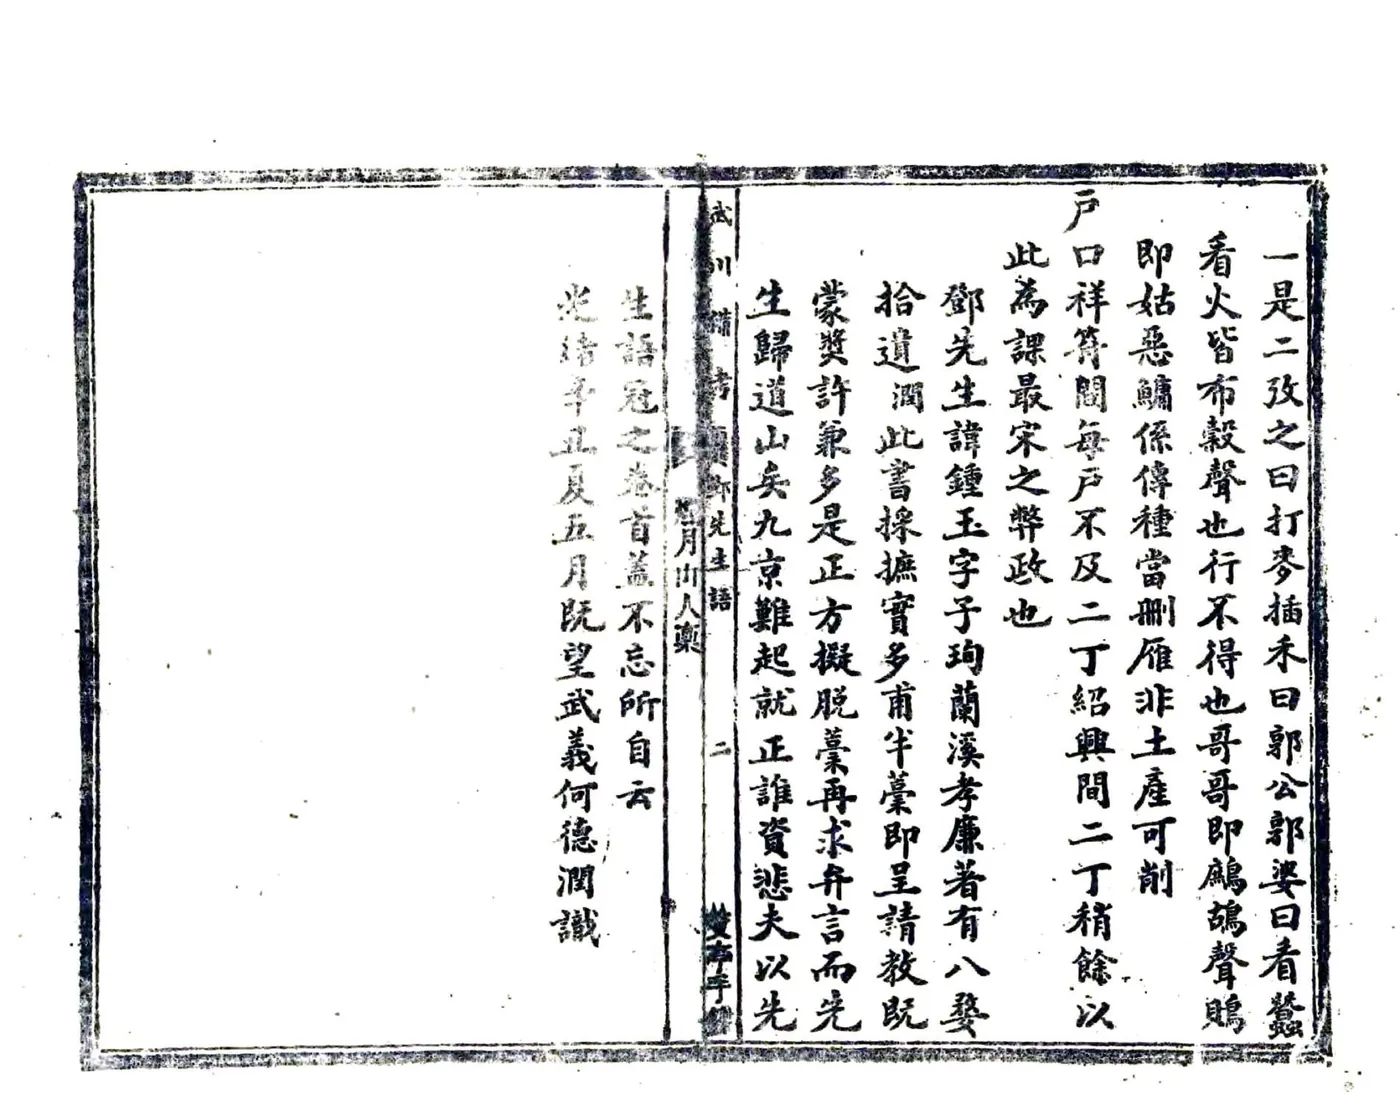 一是二攷之曰打麥插禾曰郭公郭婆曰看蠶
看火皆布穀聲也行不得也哥哥即鷓鴣聲鵙
即姑惡鱅係傳種當刪雁非土產可削
戶口祥符間每戶不及二丁紹興間二丁稍餘以
此為課最宋之弊政也
鄧先生諱鍾玉字子珣蘭溪孝廉著有八婺
拾遺潤此書採摭實多甫半藁即呈請教既
蒙獎許兼多是正方擬脫藁再求弁言而先
生歸道山矣九京難起就正誰資悲夫以先
武川備考
鄧先生語
二
雙
手
月山人藁
生語冠之卷首蓋不忘所自云
光緒辛丑夏五月既望武義何德潤識